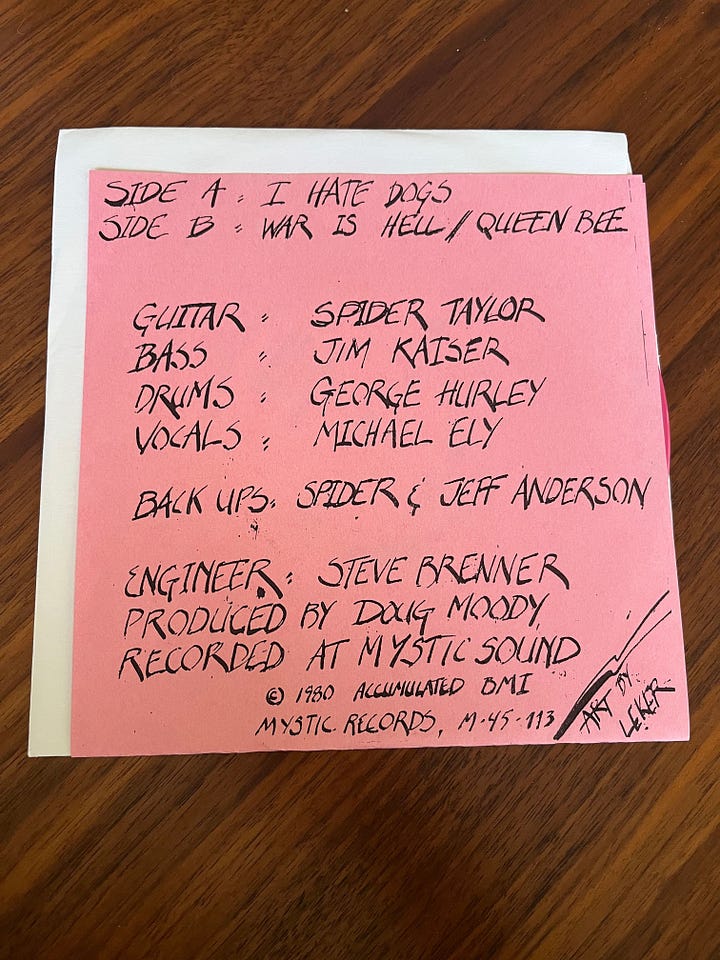 SIDE A : I HATE DOGS
SIDE B : WAR IS HELL // QUEEN BEE
GUITAR : SPIDER TAYLOR
BASS : JIM KAISER
DRUMS : GEORGE HURLEY
VOCALS : MICHAEL ELY
BACK UPS: SPIDER & JEFF ANDERSON
ENGINEER : STEVE BRENNER
PRODUCED BY DOUG MOODY
RECORDED AT MYSTIC SOUND
© 1980 ACCUMULATED BMI
MYSTIC RECORDS, M-45-113
ART BY
LEKER